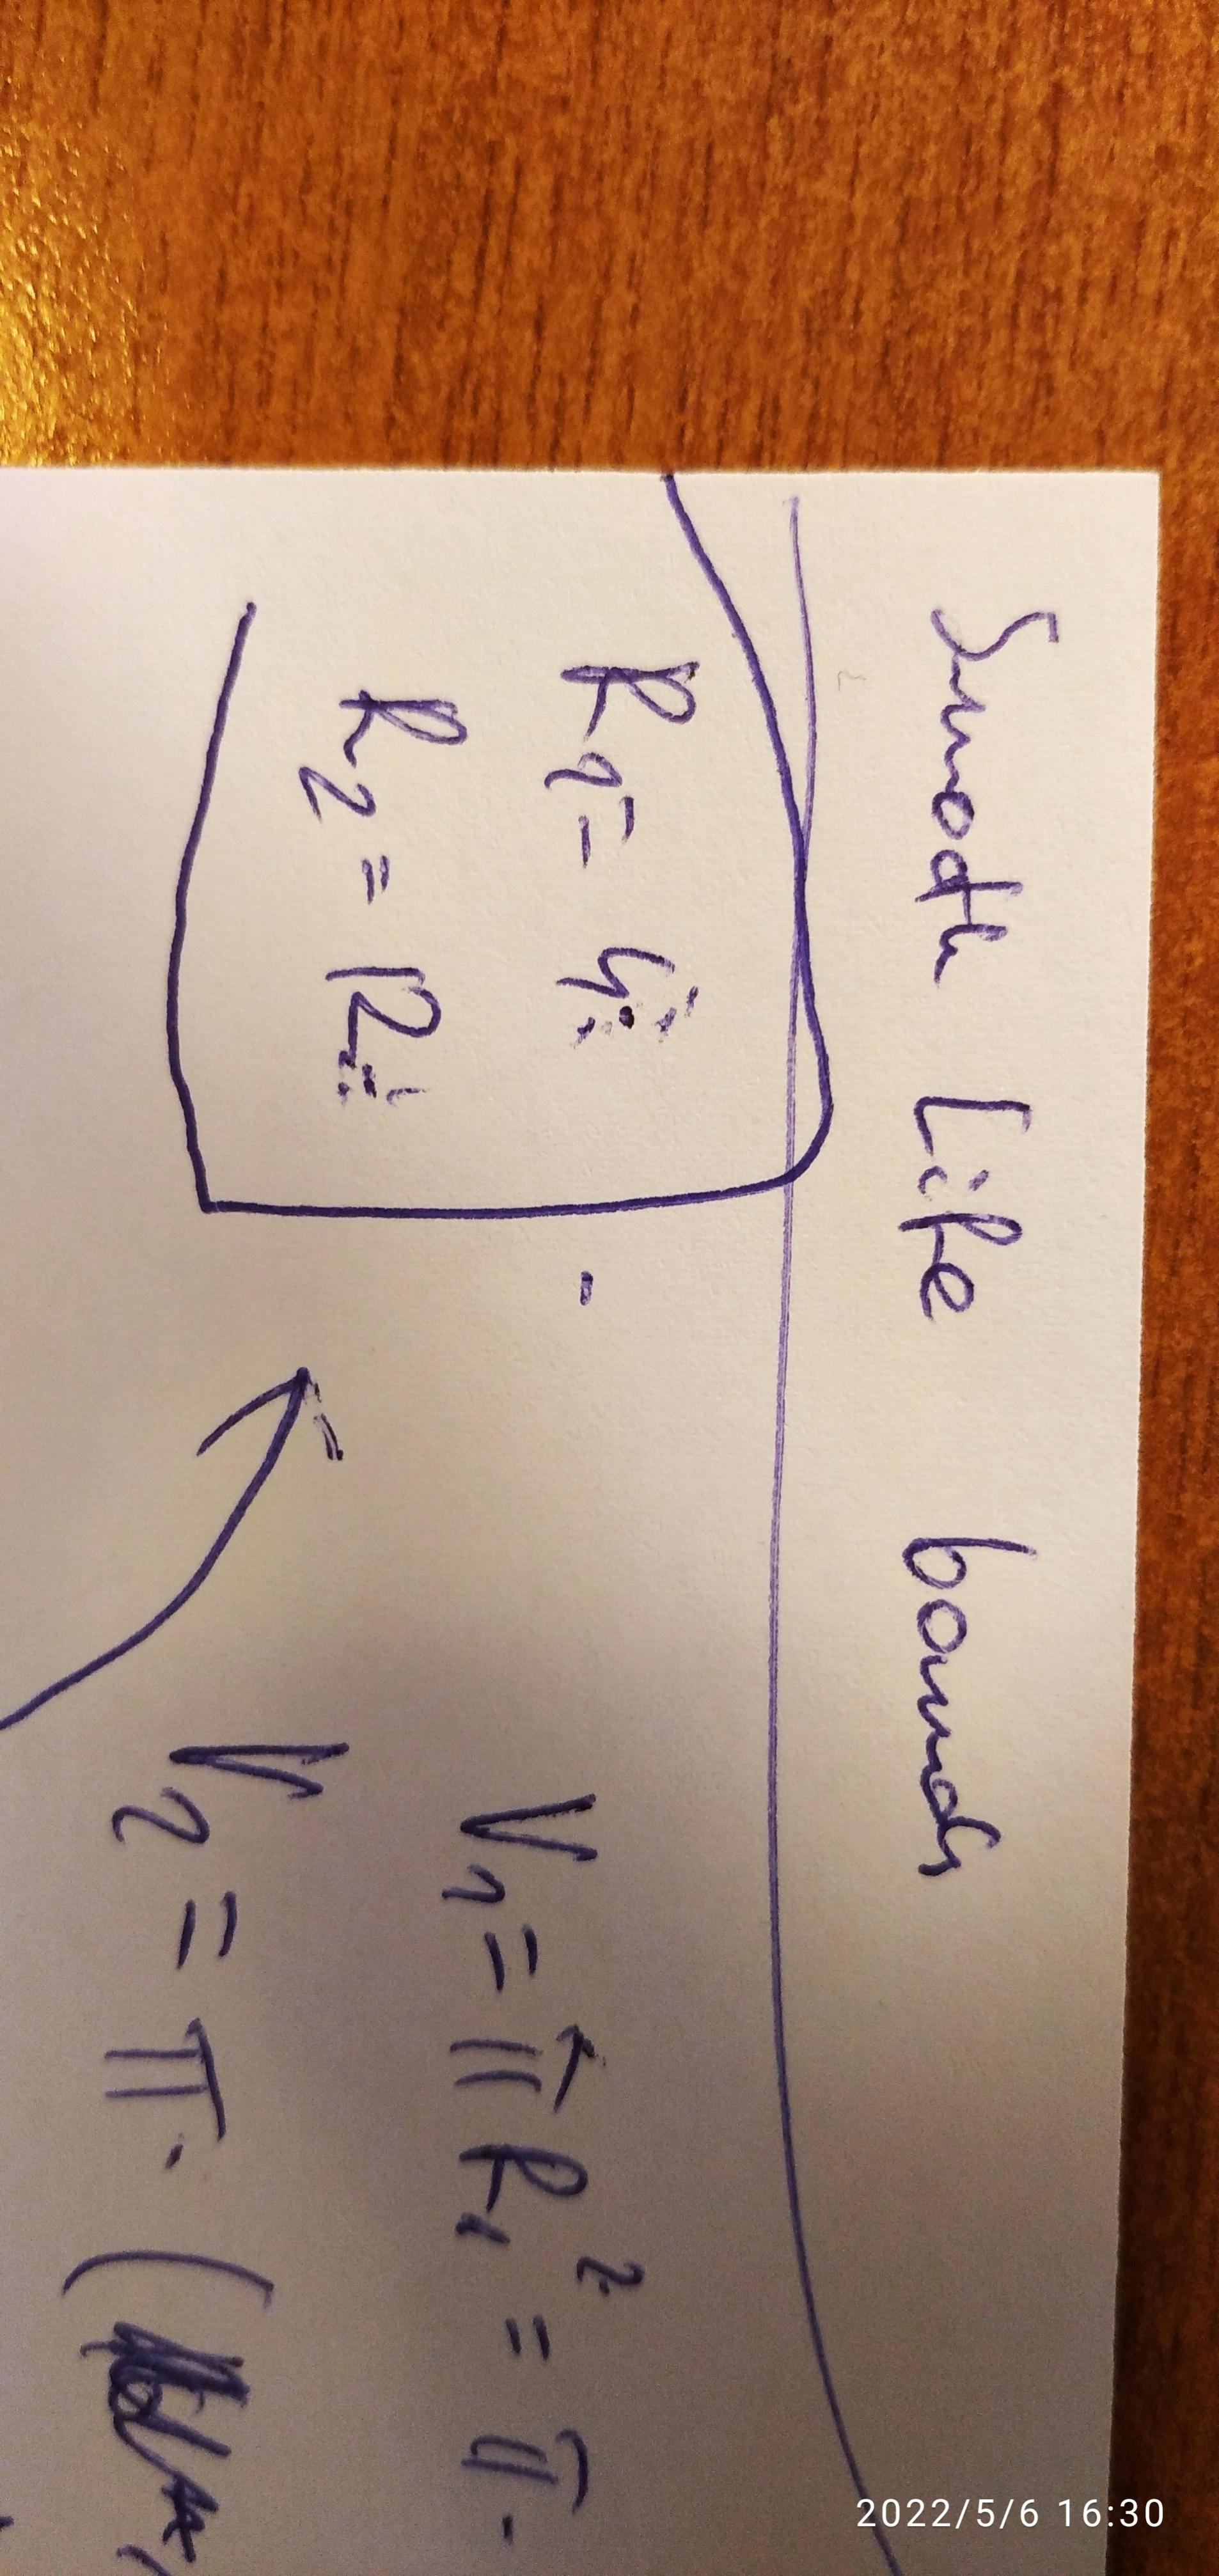 Smooth Life bounds
R1 = 4
R2 = 12
V1 = π R1² = π ·
V2 = π · (
2022/5/6 16:30